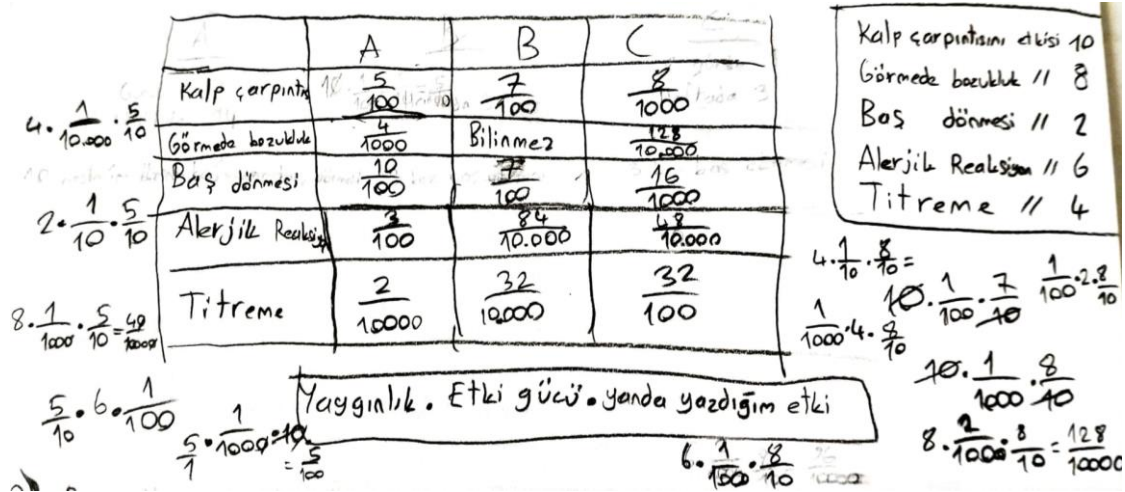 A B C
Kalp çarpıntıs 5/100 7/100 8/1000
Görmede bozukluk 4/1000 Bilinmez 128/10.000
Baş dönmesi 10/100 7/100 16/1000
Alerjik Reaksiyo 3/100 84/10.000 48/10.000
Titreme 2/10000 32/10.000 32/100
Kalp çarpıntısını etkisi 10
Görmede bozukluk // 8
Baş dönmesi // 2
Alerjik Reaksiyon // 6
Titreme // 4
4 . 1/10.000 . 5/10
2 . 1/10 . 5/10
8 . 1/1000 . 5/10 = 40/10000
5/10 . 6 . 1/100
5/1 . 1/1000 . 10 = 5/100
Yaygınlık . Etki gücü . yanda yazdığım etki
4 . 1/10 . 8/10 =
1/1000 . 4 . 8/10
10 . 1/100 . 7/10
1/100 . 2 . 8/10
10 . 1/1000 . 8/10
8 . 2/1000 . 8/10 = 128/10000
6 . 1/1000 . 8/10